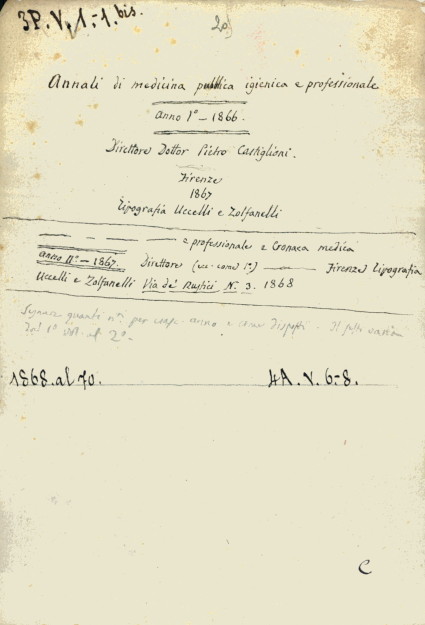 3P.V.1.-1.bis.
20
Annali di medicina pubblica igienica e professionale
Anno 1º - 1866.
Direttore Dottor Pietro Castiglioni.
Firenze
1867
Tipografia Uccelli e Zolfanelli
— — — — e professionale e Cronaca medica
Anno IIº - 1867. Direttore (ecc. come 1º) — Firenze Tipografia
Uccelli e Zolfanelli Via de' Rustici N. 3. 1868
quanti per anno e come Il
dal 1º vol. al 2º
1868.al 70. 4A.V.6-8.
C